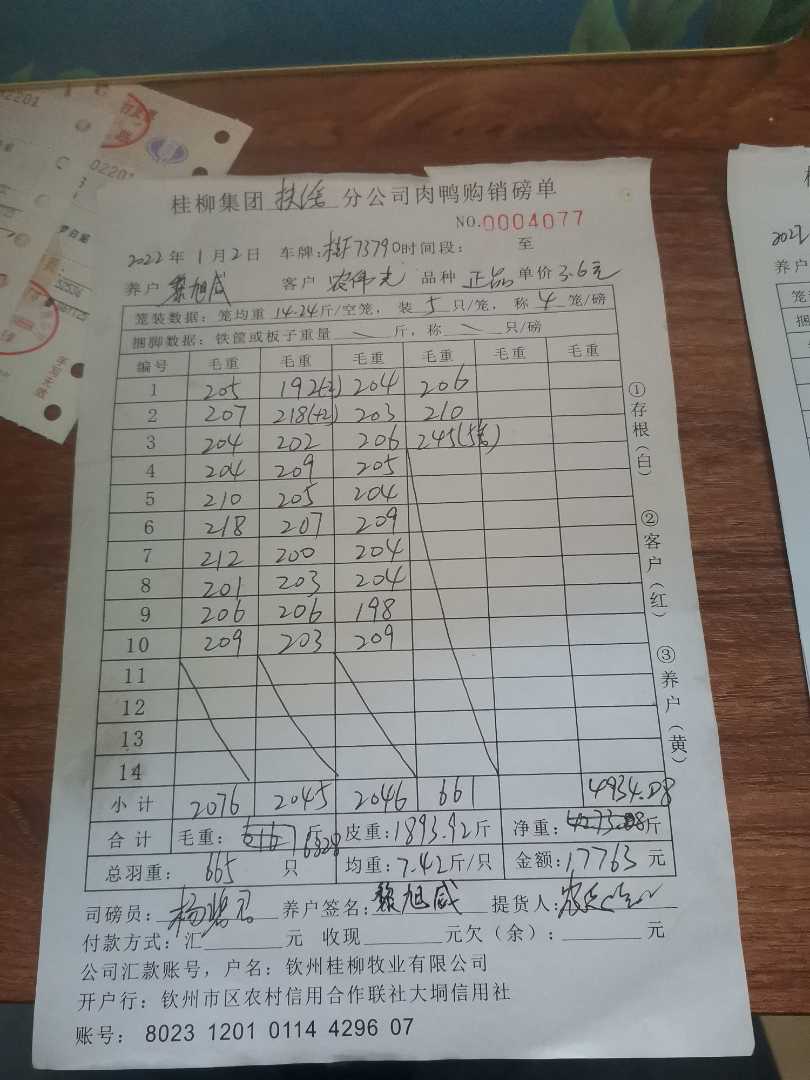 桂柳集团 扶绥 分公司肉鸭购销磅单
NO.0004077
2022年1月2日 车牌:桂F73790时间段: 至
养户 黎旭威 客户 农伟光 品种 正品 单价3.6元
笼装数据:笼均重 14.24斤/空笼,装 5 只/笼,称 4 笼/磅
捆脚数据:铁筐或板子重量 \ 斤,称 \ 只/磅
编号 毛重 毛重 毛重 毛重 毛重 毛重
1 205 192(-2) 204 206
2 207 218(+2) 203 210
3 204 202 206 245(5笼)
4 204 209 205
5 210 205 204
6 218 207 209
7 212 200 204
8 201 203 204
9 206 206 198
10 209 203 209
11
12
13
14
小计 2076 2045 2046 661 4934.08
合计 毛重: 6828 斤 皮重:1893.92斤 净重:4273.08斤
总羽重: 665 只 均重:7.42斤/只 金额:17763 元
司磅员: 养户签名:黎旭威 提货人:
付款方式:汇 元 收现 元欠(余): 元
公司汇款账号,户名:钦州桂柳牧业有限公司
开户行:钦州市区农村信用合作联社大垌信用社
账号: 8023 1201 0114 4296 07
①存根(白)
②客户(红)
③养户(黄)
02201
02201
手写无效
2022
养户